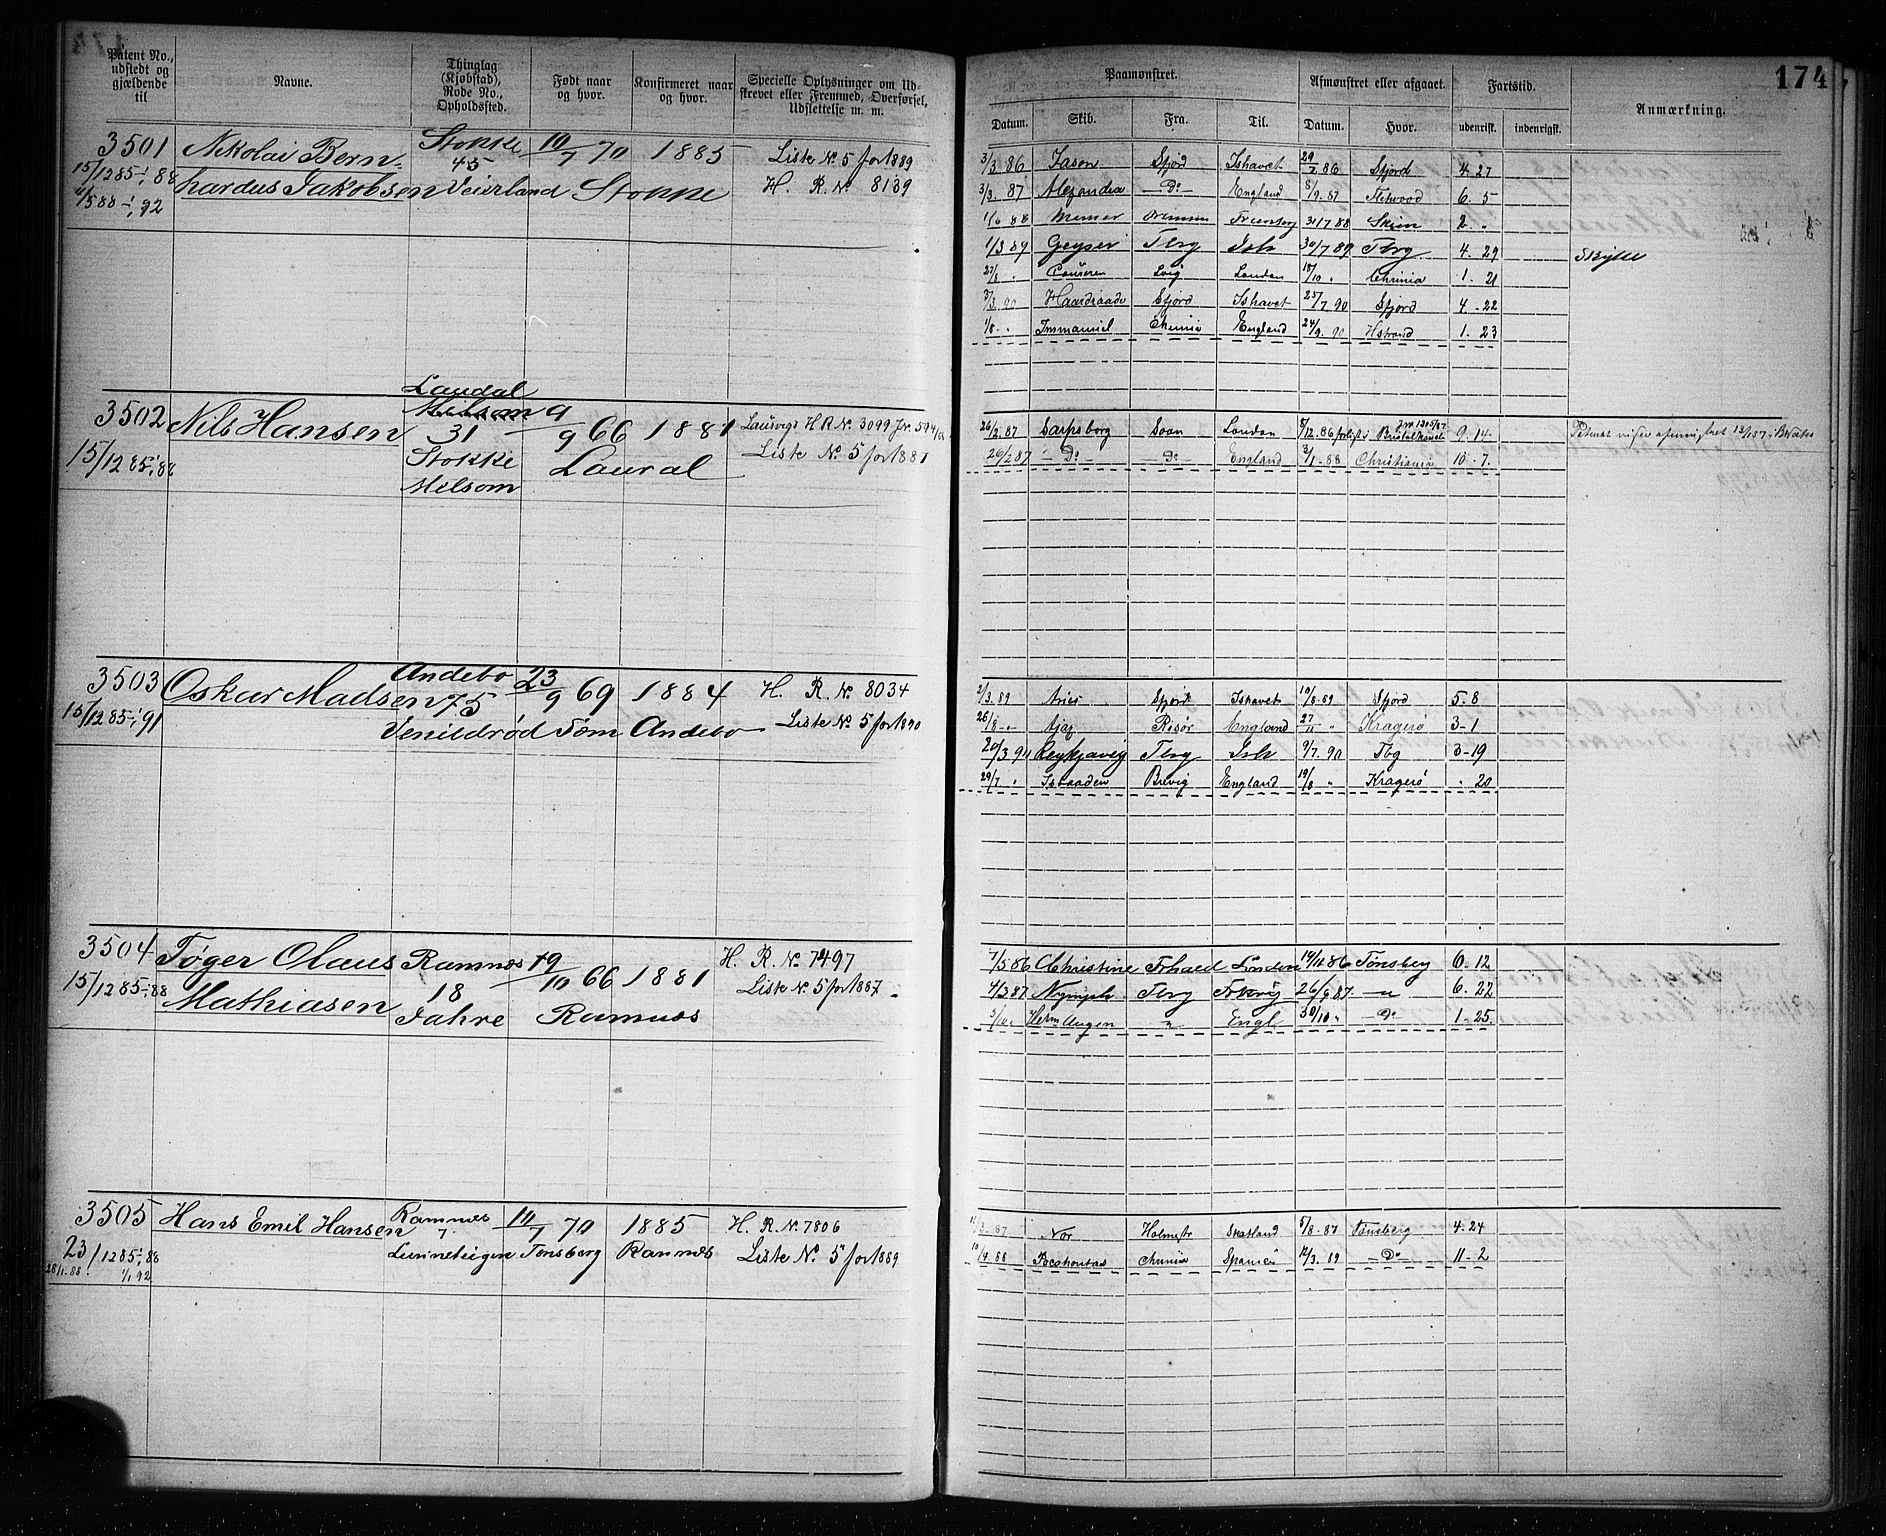 174
Patent No., udstedt og gjældende til
Navne.
Thinglag (Kjøbstad), Rode No., Opholdsted.
Født naar og hvor.
Konfirmeret naar og hvor.
Specielle Oplysninger om Udskrevet eller Fremmed, Overførsel, Udslettelse m. m.
Paamønstret.
Afmønstret eller afgaaet.
Fartstid.
Anmærkning.
Datum. Skib. Fra. Til. Datum. Hvor. udenrisk. indenrigsk.
3501 Nikolai Bern- Stokke 10/7 70 1885 Liste No. 5 for 1889
15/12 85-1/1 88 hardus Jakobsen 45 Veierland Stokke H. R. No 8139
4/5 88-1/1 92
3/3 86 Jason Sfjord Ishavet 29/7 86 Sfjord 4 27
3/3. 87 Alexandra - Do - England 8/9. 87 Fletwood 6. 5
1/6 88 31/7 88 Skien 2 "
1/3 89 Geyser Tbrg Ish 30/7 89 Tbrg 4. 29 Skylle
27/8 " Lvig London 18/10 " Chrinia 1. 21
3/3. 90 Haardraade Sfjord Ishavet 25/7 90 Sfjord 4. -22
1/8 - . Immanuel Chrinia England 24/9. 90 Hstrand 1. 23
3502 Nils Hansen Laudal Melsom 9/9 66 1881 Laurvigs H R No. 3099
15/12 85-1/1 88 31 Stokke Melsom Laural Liste No. 5 for 1881
26/2. 87 Sarpsborg Soon London 8/12. 86 9. 14
26/2 87 - Do - - Do - England 3/1. 88 Christiania 10. 7.
3503 Oskar Madsen Andebo 75 23/9 69 1884 H. R. No. 8034
15/12 85-1/1 91 Tøm Andebo Liste No. 5 for 1890
2/3. 89 Aries Sfjord Ishavet 19/8. 89 Sfjord 5. 8
26/8 - . Ajax Risør England 27/11 " Kragerø 3-1
20/3 90 Reykjavig Tbrg Ish 9/7. 90 Tbg 3-19
29/7 " Isbaaden Brevig England 19/8 " Kragerø " 20
3504 Tøger Olaus Ramnes 19/10 66 1881 H. R. No. 7497
15/12 85-1/1 88 Mathiasen 18 Jahre Ramnes Liste No. 5 for 1887
7/5 86 Christine Frhald London 14/11 86 Tønsberg 6. 12
4/3 87 Nymph Tbrg 26/9 87 - " 6. 22
5/10 Engl. 30/10 " - Do 1. 25.
3505 Hans Emil Hansen Ramnes 7. 10/7 70 1885 H. R. No. 7806
23/12 85-1/1 88 Lunneteigen Tønsberg Ramnes Liste No. 5 for 1889
28/1. 88. 1/1 92
11/3. 87 Nor Holmestr Skotland 5/8. 87 Tønsberg 4. 24
10/4. 88 Pocahontas Chrinia Spanien 12/3. 89 - Do 11. - 2